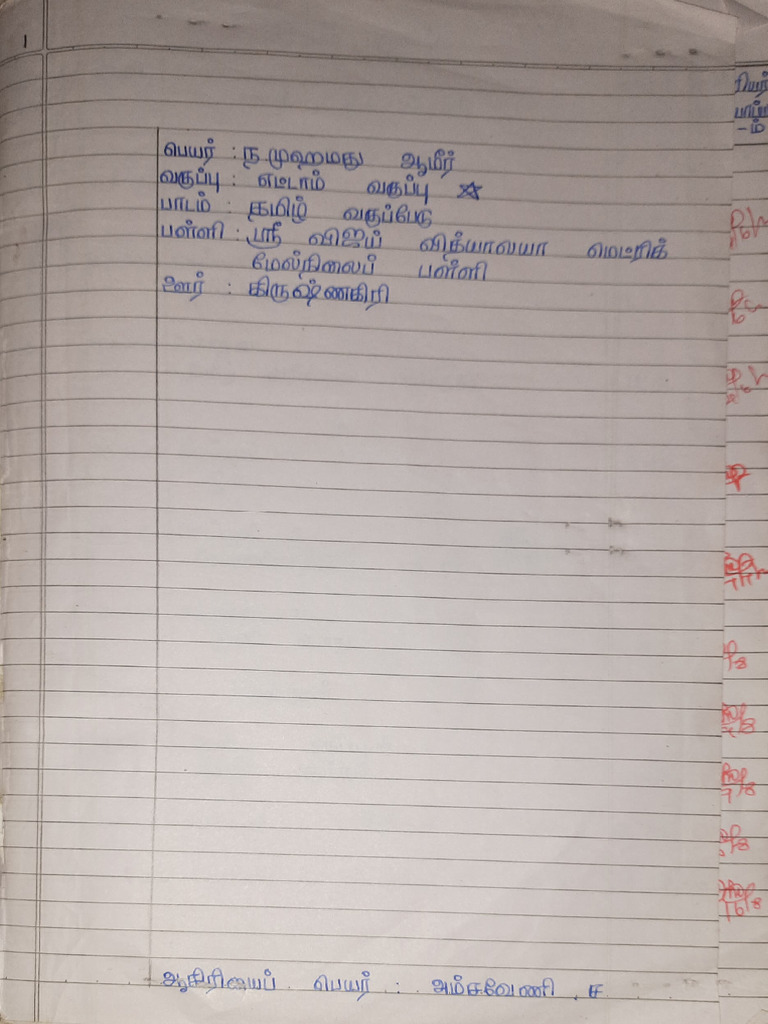 1
பெயர் : ந.முஹமது ஆமீர்
வகுப்பு : எட்டாம் வகுப்பு ☆
பாடம் : தமிழ் வகுப்பேடு
பள்ளி : ஸ்ரீ விஜய் வித்யாலயா மெட்ரிக்
மேல்நிலைப் பள்ளி
ஊர் : கிருஷ்ணகிரி
ஆசிரியைப் பெயர் : அம்சவேணி ச